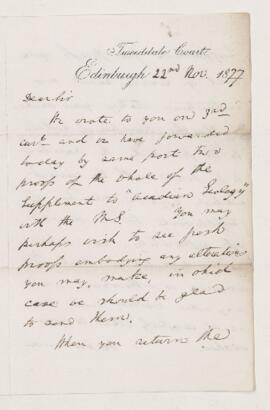 Tweeddale Court.
Edinburgh 22nd Nov. 1877
Dear Sir
We wrote to you on 3rd
curt and have forwarded
today by same post two
proofs of the whole of the
Supplement to "Acadian Geology"
with the MS You may
perhaps wish to see fresh
proofs embodying any alterations
you may make, in which
case we should be glad
to send them.
When you return the